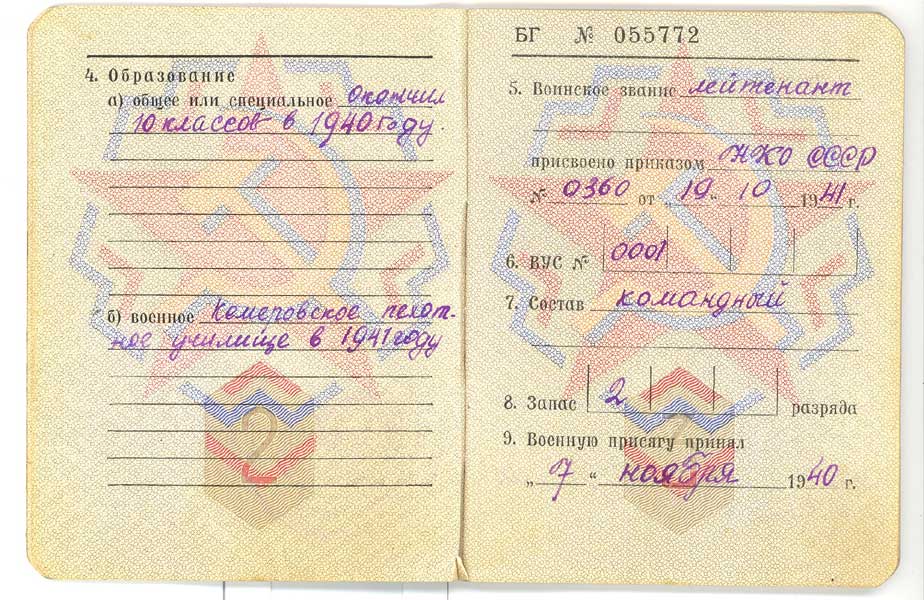 4. Образование
а) общее или специальное окончил
10 классов в 1940 году.
б) военное Кемеровское пехот-
ное училище в 1941 году
2
БГ № 055772
5. Воинское звание лейтенант
присвоено приказом НКО СССР
№ 0360 от „19“ 10 1941 г.
6. ВУС № 0001
7. Состав командный
8. Запас 2 разряда
9. Военную присягу принял
„7“ ноября 1940 г.